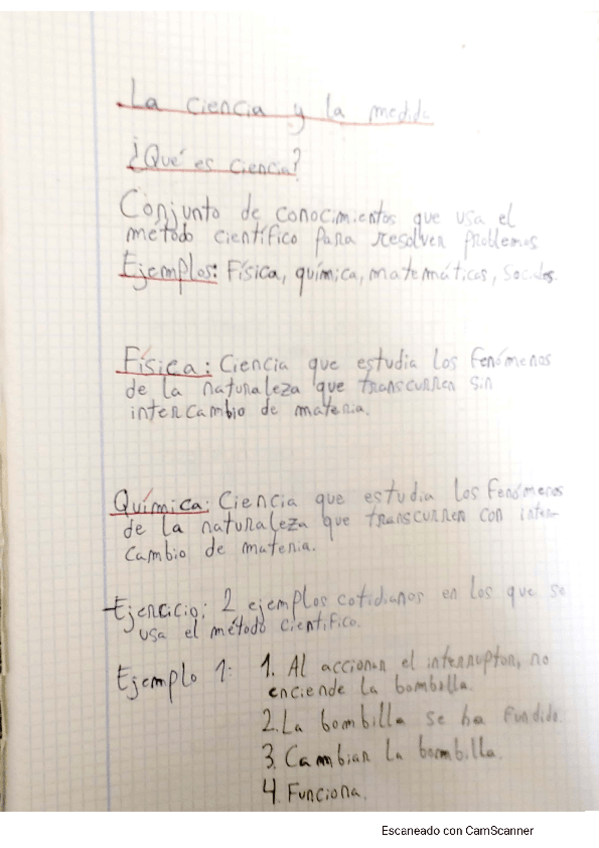 La ciencia y la medida
¿Qué es ciencia?
Conjunto de conocimientos que usa el
método científico para resolver problemas
Ejemplos: Física, química, matemáticas, Sociales.
Física: Ciencia que estudia los fenómenos
de la naturaleza que transcurren sin
intercambio de materia.
Química: Ciencia que estudia los fenómenos
de la naturaleza que transcurren con inter-
cambio de materia.
Ejercicio: 2 ejemplos cotidianos en los que se
usa el método científico.
Ejemplo 1: 1. Al accionar el interruptor, no
enciende la bombilla.
2. La bombilla se ha fundido.
3. Cambiar la bombilla.
4. Funciona.
Escaneado con CamScanner